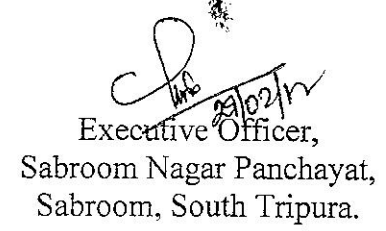 29/02/12
Executive Officer,
Sabroom Nagar Panchayat,
Sabroom, South Tripura.